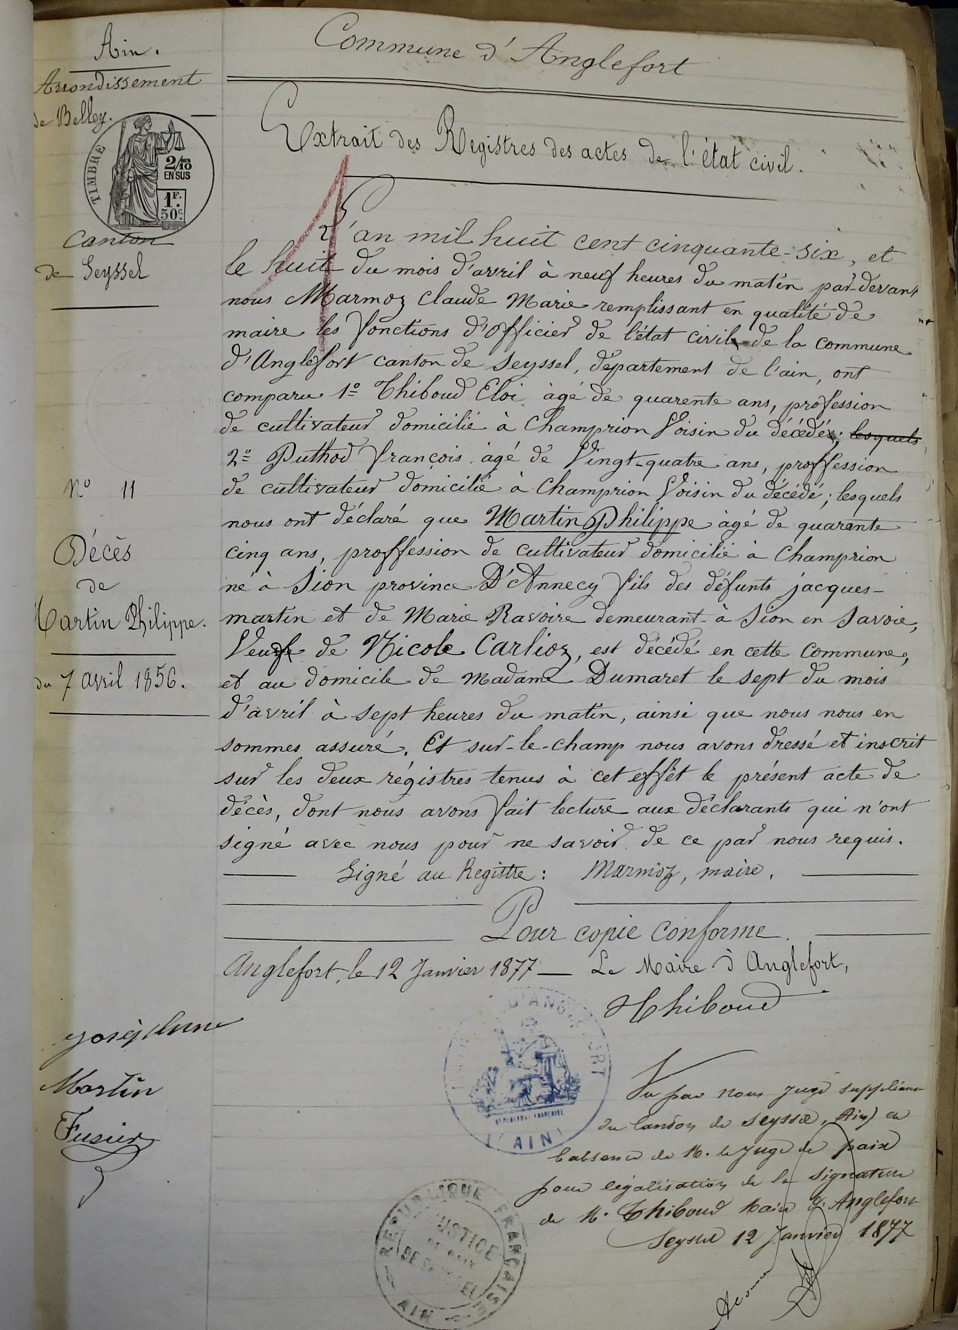 Commune d'Anglefort
Ain.
Arrondissement
de Belley.
TIMBRE
2/10
EN SUS
1F.
50c
Canton
de Seyssel
Extrait des Registres des actes de l'état civil.
L'an mil huit cent cinquante-six, et
le huit du mois d'avril à neuf heures du matin par devant
nous Marmoz Claude Marie remplissant en qualité de
maire les fonctions d'officier de l'état civil de la commune
d'Anglefort canton de Seyssel, département de l'ain, ont
comparu 1º Thiboud Eloi âgé de quarente ans, profession
de cultivateur domicilié à Champrion Voisin du décédé; lesquels
2º Puthod François âgé de Vingt-quatre ans, proffession
de cultivateur domicilié à Champrion Voisin du décédé; lesquels
nous ont déclaré que Martin Philippe âgé de quarante
cinq ans, proffession de cultivateur domicilié à Champrion
né à Sion province D'Annecy fils des défunts jacques-
martin et de Marie Ravoire demeurant à Sion en Savoie,
Veuf de Nicole Carlioz, est décédé en cette commune,
et au domicile de Madame Dumaret le sept du mois
d'avril à sept heures du matin, ainsi que nous nous en
sommes assuré. Et sur-le-champ nous avons dressé et inscrit
sur les deux régistres tenus à cet effêt le présent acte de
décès, dont nous avons fait lecture aux déclarants qui n'ont
signé avec nous pour ne savoir de ce par nous requis.
Signé au Registre: Marmoz, maire.
Nº 11
Décès
de
Martin Philippe.
du 7 avril 1856.
Pour copie conforme.
Anglefort, le 12 Janvier 1877 — Le Maire d'Anglefort,
Thiboud
D'ANGLEFORT
REPUBLIQUE FRANÇAISE
(AIN)
Joséphine
Martin
Fusier
Vu par nous juge suppléant
du Canton de Seyssel, (Ain) en
l'absence de M. le Juge de paix
pour légalisation de la signature
de M. Thiboud Maire d'Anglefort
Seyssel 12 Janvier 1877
REPUBLIQUE FRANÇAISE
JUSTICE
DE PAIX
DE SEYSSEL
AIN